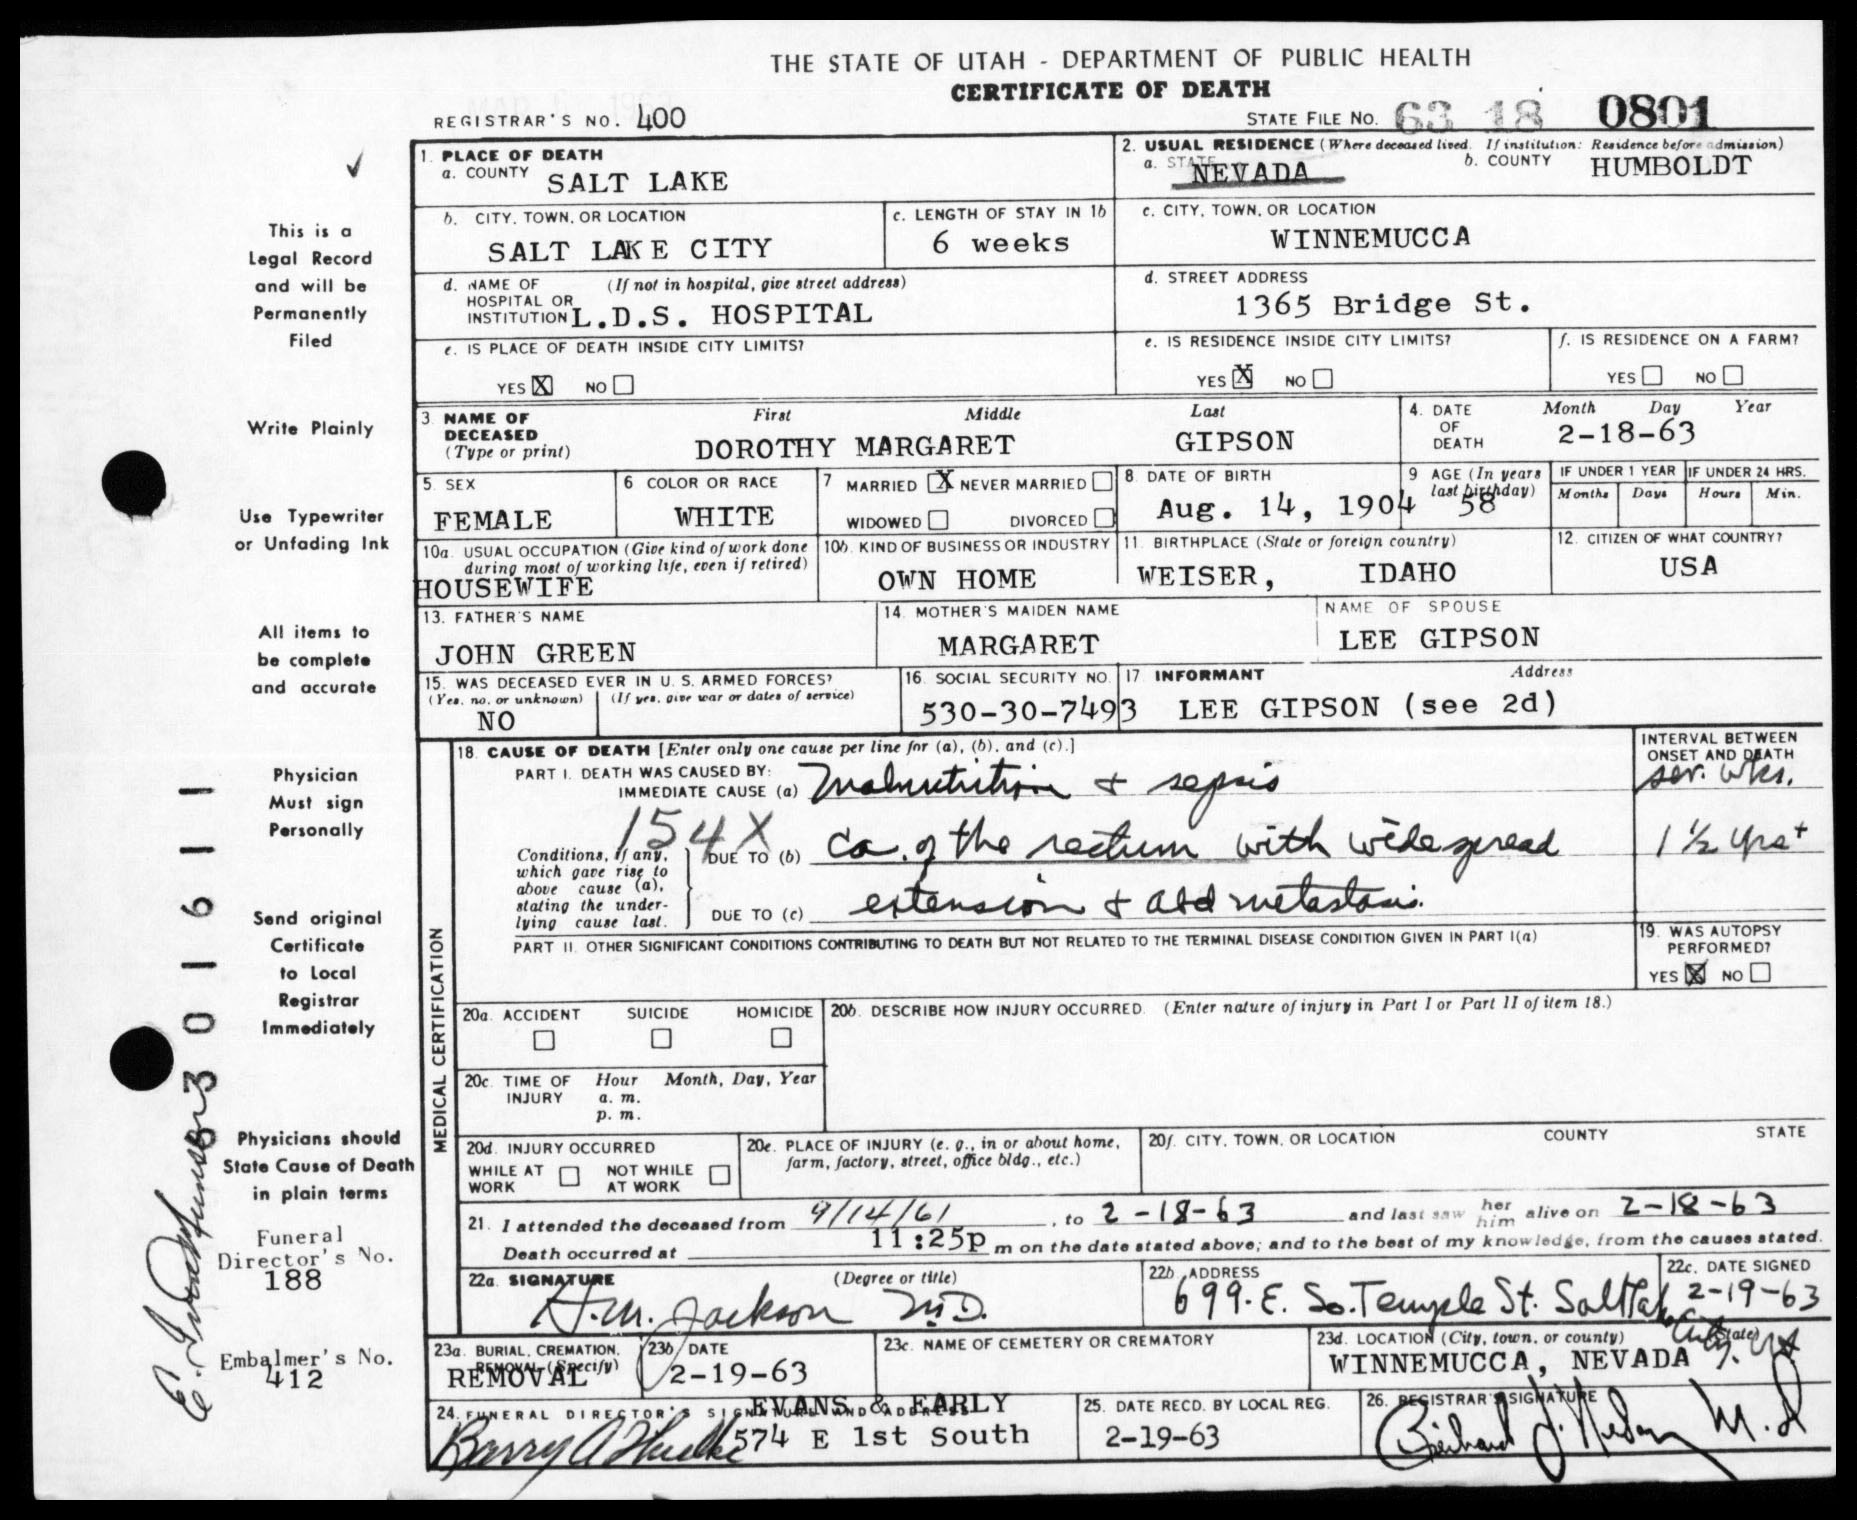 THE STATE OF UTAH - DEPARTMENT OF PUBLIC HEALTH
CERTIFICATE OF DEATH
REGISTRAR'S NO. 400
STATE FILE NO. 63 18 0801
This is a
Legal Record
and will be
Permanently
Filed
Write Plainly
Use Typewriter
or Unfading Ink
All items to
be complete
and accurate
Physician
Must sign
Personally
Send original
Certificate
to Local
Registrar
Immediately
Physicians should
State Cause of Death
in plain terms
Funeral
Director's No.
188
Embalmer's No.
412
1. PLACE OF DEATH
a. COUNTY SALT LAKE
2. USUAL RESIDENCE (Where deceased lived. If institution: Residence before admission)
a. STATE NEVADA b. COUNTY HUMBOLDT
b. CITY, TOWN, OR LOCATION
SALT LAKE CITY
c. LENGTH OF STAY IN 1b
6 weeks
c. CITY, TOWN, OR LOCATION
WINNEMUCCA
d. NAME OF (If not in hospital, give street address)
HOSPITAL OR
INSTITUTION L.D.S. HOSPITAL
d. STREET ADDRESS
1365 Bridge St.
e. IS PLACE OF DEATH INSIDE CITY LIMITS?
YES X NO
e. IS RESIDENCE INSIDE CITY LIMITS?
YES X NO
f. IS RESIDENCE ON A FARM?
YES NO
3. NAME OF DECEASED (Type or print)
First Middle Last
DOROTHY MARGARET GIPSON
4. DATE OF DEATH
Month Day Year
2-18-63
5. SEX
FEMALE
6 COLOR OR RACE
WHITE
7 MARRIED X NEVER MARRIED
WIDOWED DIVORCED
8. DATE OF BIRTH
Aug. 14, 1904
9 AGE (In years last birthday)
58
IF UNDER 1 YEAR IF UNDER 24 HRS.
Months Days Hours Min.
10a. USUAL OCCUPATION (Give kind of work done
during most of working life, even if retired)
HOUSEWIFE
10b. KIND OF BUSINESS OR INDUSTRY
OWN HOME
11. BIRTHPLACE (State or foreign country)
WEISER, IDAHO
12. CITIZEN OF WHAT COUNTRY?
USA
13. FATHER'S NAME
JOHN GREEN
14. MOTHER'S MAIDEN NAME
MARGARET
NAME OF SPOUSE
LEE GIPSON
15. WAS DECEASED EVER IN U. S. ARMED FORCES?
(Yes, no, or unknown) (If yes, give war or dates of service)
NO
16. SOCIAL SECURITY NO.
530-30-7493
17. INFORMANT Address
LEE GIPSON (see 2d)
MEDICAL CERTIFICATION
18. CAUSE OF DEATH [Enter only one cause per line for (a), (b), and (c).]
PART I. DEATH WAS CAUSED BY:
IMMEDIATE CAUSE (a) Malnutrition + sepsis
INTERVAL BETWEEN
ONSET AND DEATH
sev. wks.
154X
Conditions, if any,
which gave rise to
above cause (a),
stating the under-
lying cause last.
DUE TO (b) Ca. of the rectum with widespread
1 1/2 yrs+
DUE TO (c) extension + abd metastasis.
PART II. OTHER SIGNIFICANT CONDITIONS CONTRIBUTING TO DEATH BUT NOT RELATED TO THE TERMINAL DISEASE CONDITION GIVEN IN PART I(a)
19. WAS AUTOPSY
PERFORMED?
YES X NO
20a. ACCIDENT SUICIDE HOMICIDE
20b. DESCRIBE HOW INJURY OCCURRED. (Enter nature of injury in Part I or Part II of item 18.)
20c. TIME OF INJURY Hour Month, Day, Year
a. m.
p. m.
20d. INJURY OCCURRED
WHILE AT WORK NOT WHILE AT WORK
20e. PLACE OF INJURY (e. g., in or about home,
farm, factory, street, office bldg., etc.)
20f. CITY, TOWN, OR LOCATION COUNTY STATE
21. I attended the deceased from 9/14/61, to 2-18-63 and last saw her him alive on 2-18-63
Death occurred at 11:25p m on the date stated above; and to the best of my knowledge, from the causes stated.
22a. SIGNATURE (Degree or title)
H.M. Jackson M.D.
22b. ADDRESS
699. E. So. Temple St. Salt Lake City, Ut
22c. DATE SIGNED
2-19-63
23a. BURIAL, CREMATION,
REMOVAL (Specify)
REMOVAL
23b. DATE
2-19-63
23c. NAME OF CEMETERY OR CREMATORY
23d. LOCATION (City, town, or county) (State)
WINNEMUCCA, NEVADA
24. FUNERAL DIRECTOR'S SIGNATURE AND ADDRESS
EVANS & EARLY
574 E 1st South
25. DATE RECD. BY LOCAL REG.
2-19-63
26. REGISTRAR'S SIGNATURE
M.D